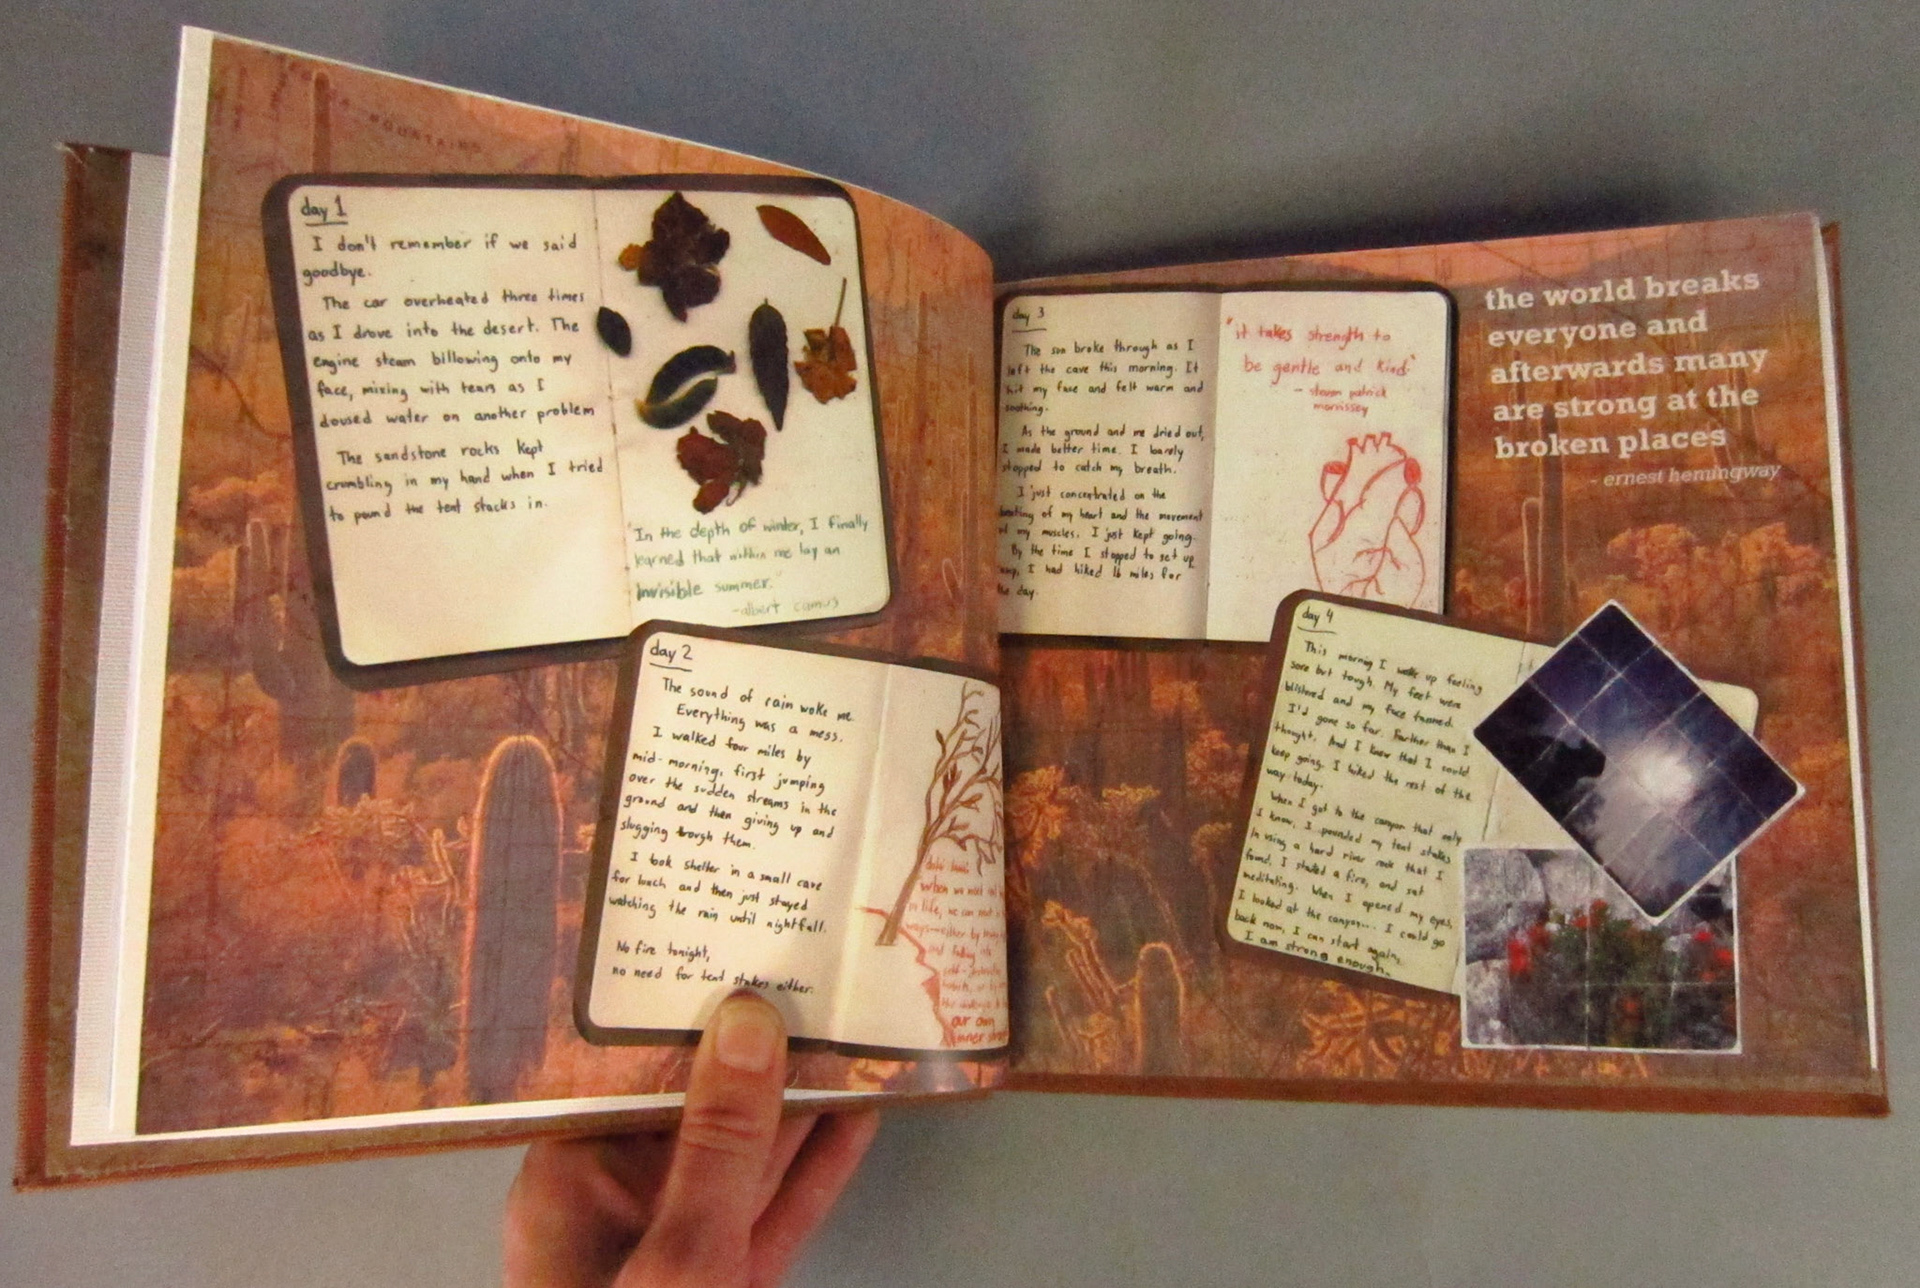 MOUNTAINS
day 1
I don't remember if we said
goodbye.
The car overheated three times
as I drove into the desert. The
engine steam billowing onto my
face, mixing with tears as I
doused water on another problem
The sandstone rocks kept
crumbling in my hand when I tried
to pound the tent stacks in.
"In the depth of winter, I finally
learned that within me lay an
invisible summer."
-albert camus
day 2
The sound of rain woke me.
Everything was a mess.
I walked four miles by
mid-morning, first jumping
over the sudden streams in the
ground and then giving up and
slugging through them.
I took shelter in a small cave
for lunch and then just stayed
watching the rain until nightfall.
No fire tonight,
no need for tent stakes either.
dalai lama
when we meet
in life, we can
ways—either by
and falling into
self-
habits, or by
our own
inner
day 3
The sun broke through as I
left the cave this morning. It
hit my face and felt warm and
soothing.
As the ground and me dried out,
I made better time. I barely
stopped to catch my breath.
I just concentrated on the
beating of my heart and the movement
of my muscles. I just kept going.
By the time I stopped to set up
camp, I had hiked 16 miles for
the day.
"it takes strength to
be gentle and kind."
- steven patrick
morrissey
the world breaks
everyone and
afterwards many
are strong at the
broken places
- ernest hemingway
day 4
This morning I woke up feeling
sore but tough. My feet were
blistered and my face tanned.
I'd gone so far. Farther than I
thought. And I knew that I could
keep going. I hiked the rest of the
way today.
When I got to the canyon that only
I know, I pounded my tent stakes
in using a hard river rock that I
found, I started a fire, and sat
meditating. When I opened my eyes,
I looked at the canyon... I could go
back now, I can start again,
I am strong enough.